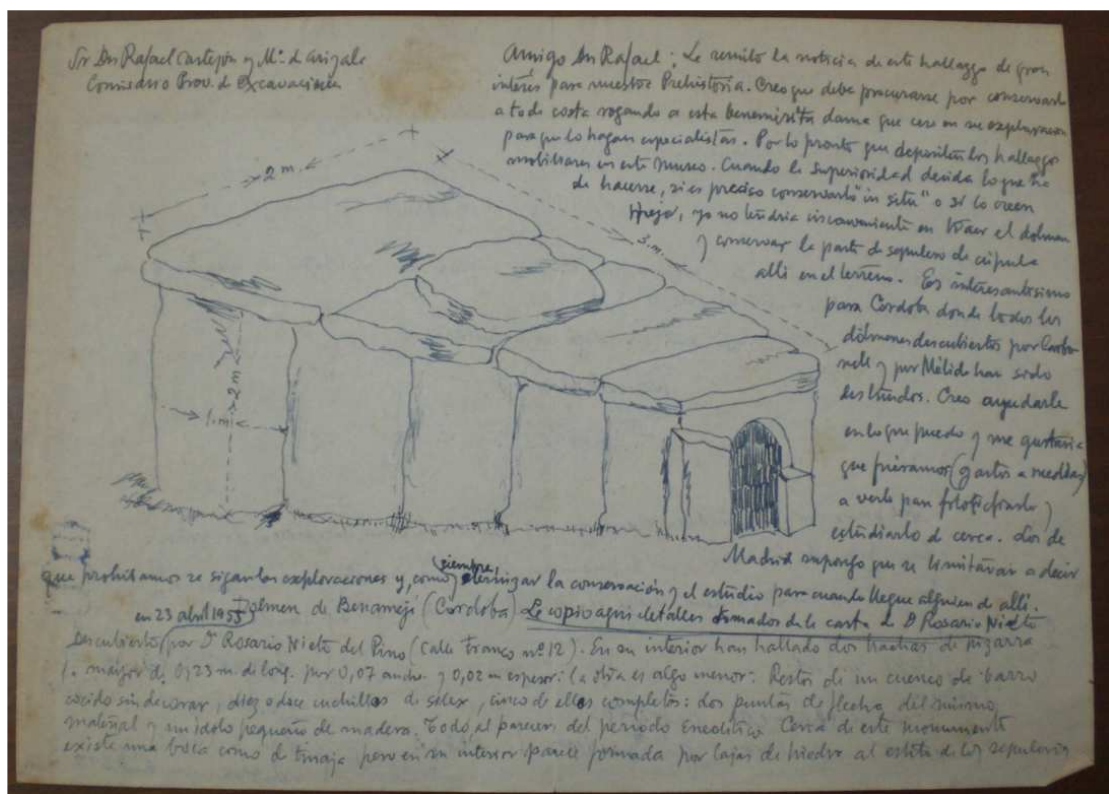 Sr Dn Rafael Castejón y Mz. d Arizala
Comisario Prov. de Excavaciones
Amigo Dn Rafael: Le remito la noticia de este hallazgo de gran
interés para nuestra Prehistoria. Creo que debe procurarse por conservarlo
a todo costa rogando a esta benemérita dama que cese en su exploración
para que lo hagan especialistas. Por lo pronto que depositen los hallazgos
mobiliares en este museo. Cuando la superioridad decida lo que ha
de hacerse, si es preciso conservarlo "in situ" o si lo creen
mejor, yo no tendría inconveniente en traer el dolmen
y conservar la parte de sepulcro de cúpula
allí en el terreno. Es interesantísimo
para Córdoba donde todos los
dólmenes descubiertos por Carbo-
nell y por Mélida han sido
destruidos. Creo ayudarle
en lo que puedo y me gustaria
que fuéramos (gastos a medias)
a verlo para fotografiarlo y
estudiarlo de cerca. Los de
Madrid supongo que se limitarán a decir
que prohibamos se sigan las exploraciones y, como siempre, la conservación y el estudio para cuando llegue alguien de allí.
en 23 abril 1955 Dolmen de Benamejí (Córdoba) Le copio aqui detalles tomados de la carta de Dª Rosario Nieto
Descubierto por Dª Rosario Nieto del Pino (Calle Franco nº 12). En su interior han hallado dos hachas de pizarra
l. mayor d. 0,23 m. de long. por 0,07 ancho y 0,02 m espesor: la otra es algo menor: Restos de un cuenco de barro
cocido sin decorar, diez o doce cuchillos de silex, cinco de ellos completos: dos puntas de flecha del mismo
material y un ídolo pequeño de madera. Todo al parecer del periodo eneolítico Cerca de este monumento
existe una boca como de tinaja pero en su interior parece formada por lajas de piedra al estilo de los sepulcros
2 m.
3. m.
2 m
1. m